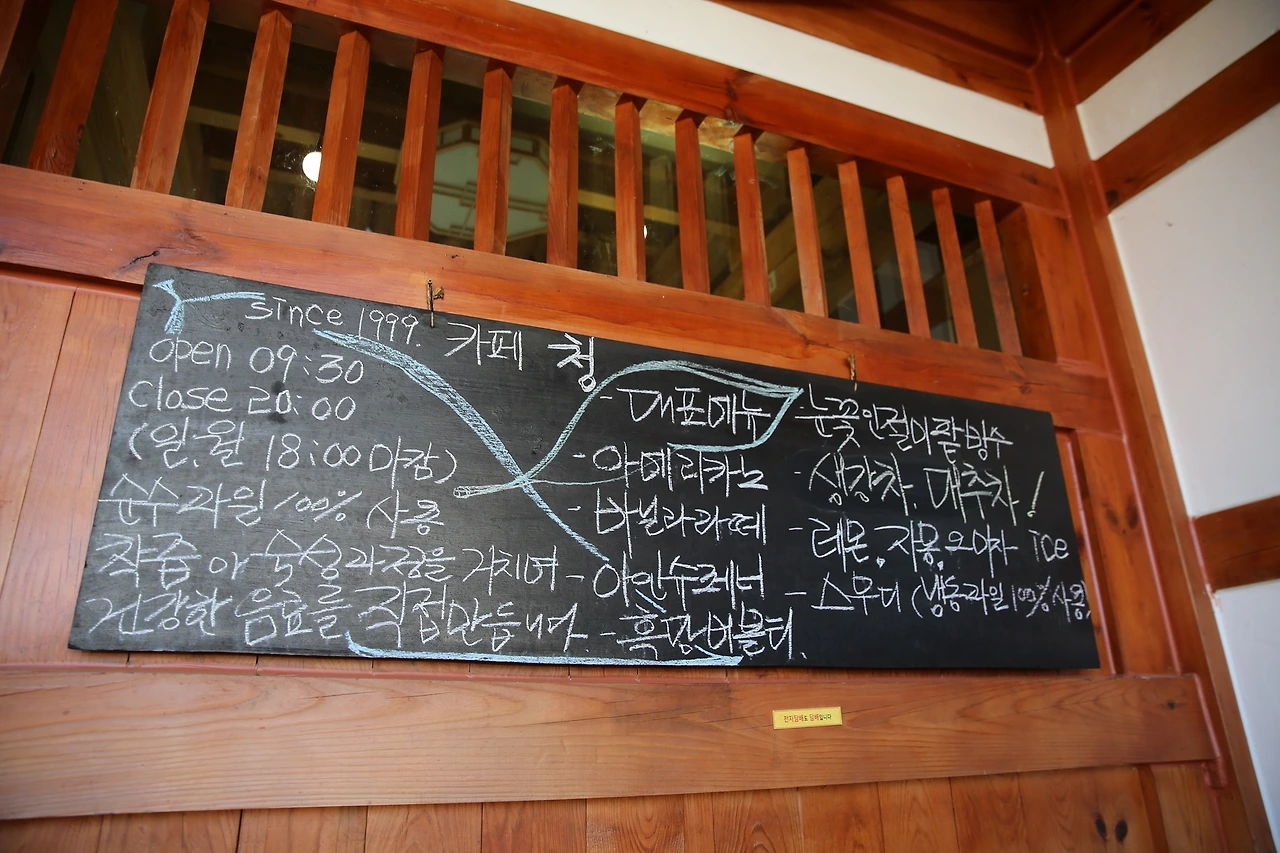 since 1999. 카페 청
open 09:30
close 20:00
(일.월 18:00 마감)
순수과일 100% 사용
착즙아 숙성과정을 거치며
건강한 음료를 직접만듭니다.
- 대표메뉴
- 아메리카노
- 바닐라라떼
- 아인슈페너
- 흑당버블티.
- 눈꽃인절미팥빙수
- 생강차. 대추차!
- 레몬. 자몽. 오미자 Ice
- 스무디 (냉동과일 100% 사용)
전자담배도 담배입니다